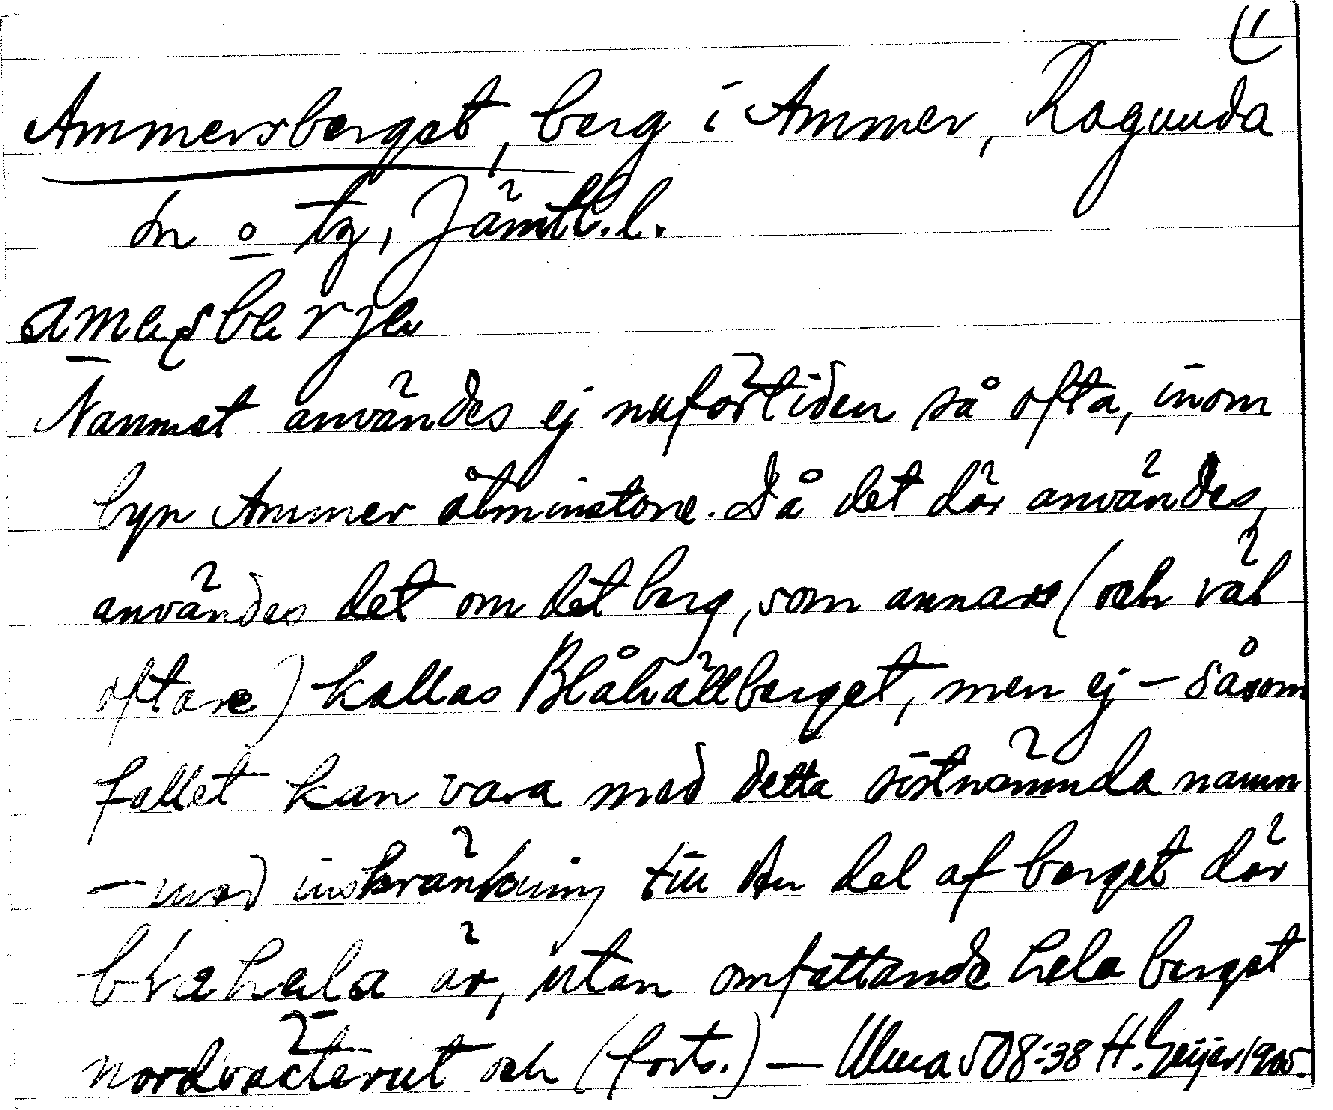 (1
Ammersberget, berg i Ammer, Ragunda
sn o tg, Jämtl. l.
Namnet användes ej nuförtiden så ofta, inom
byn Ammer åtminstone. Då det där användes,
användes det om det berg, som annars (och väl
oftare) kallas Blåhällberget, men ej – såsom
fallet kan vara med detta sistnämnda namn
– med inskränkning till den del af berget där
är, utan omfattande hela berget
nordvästerut och (forts.) – Uma 508:38 H. Geijer 1905.